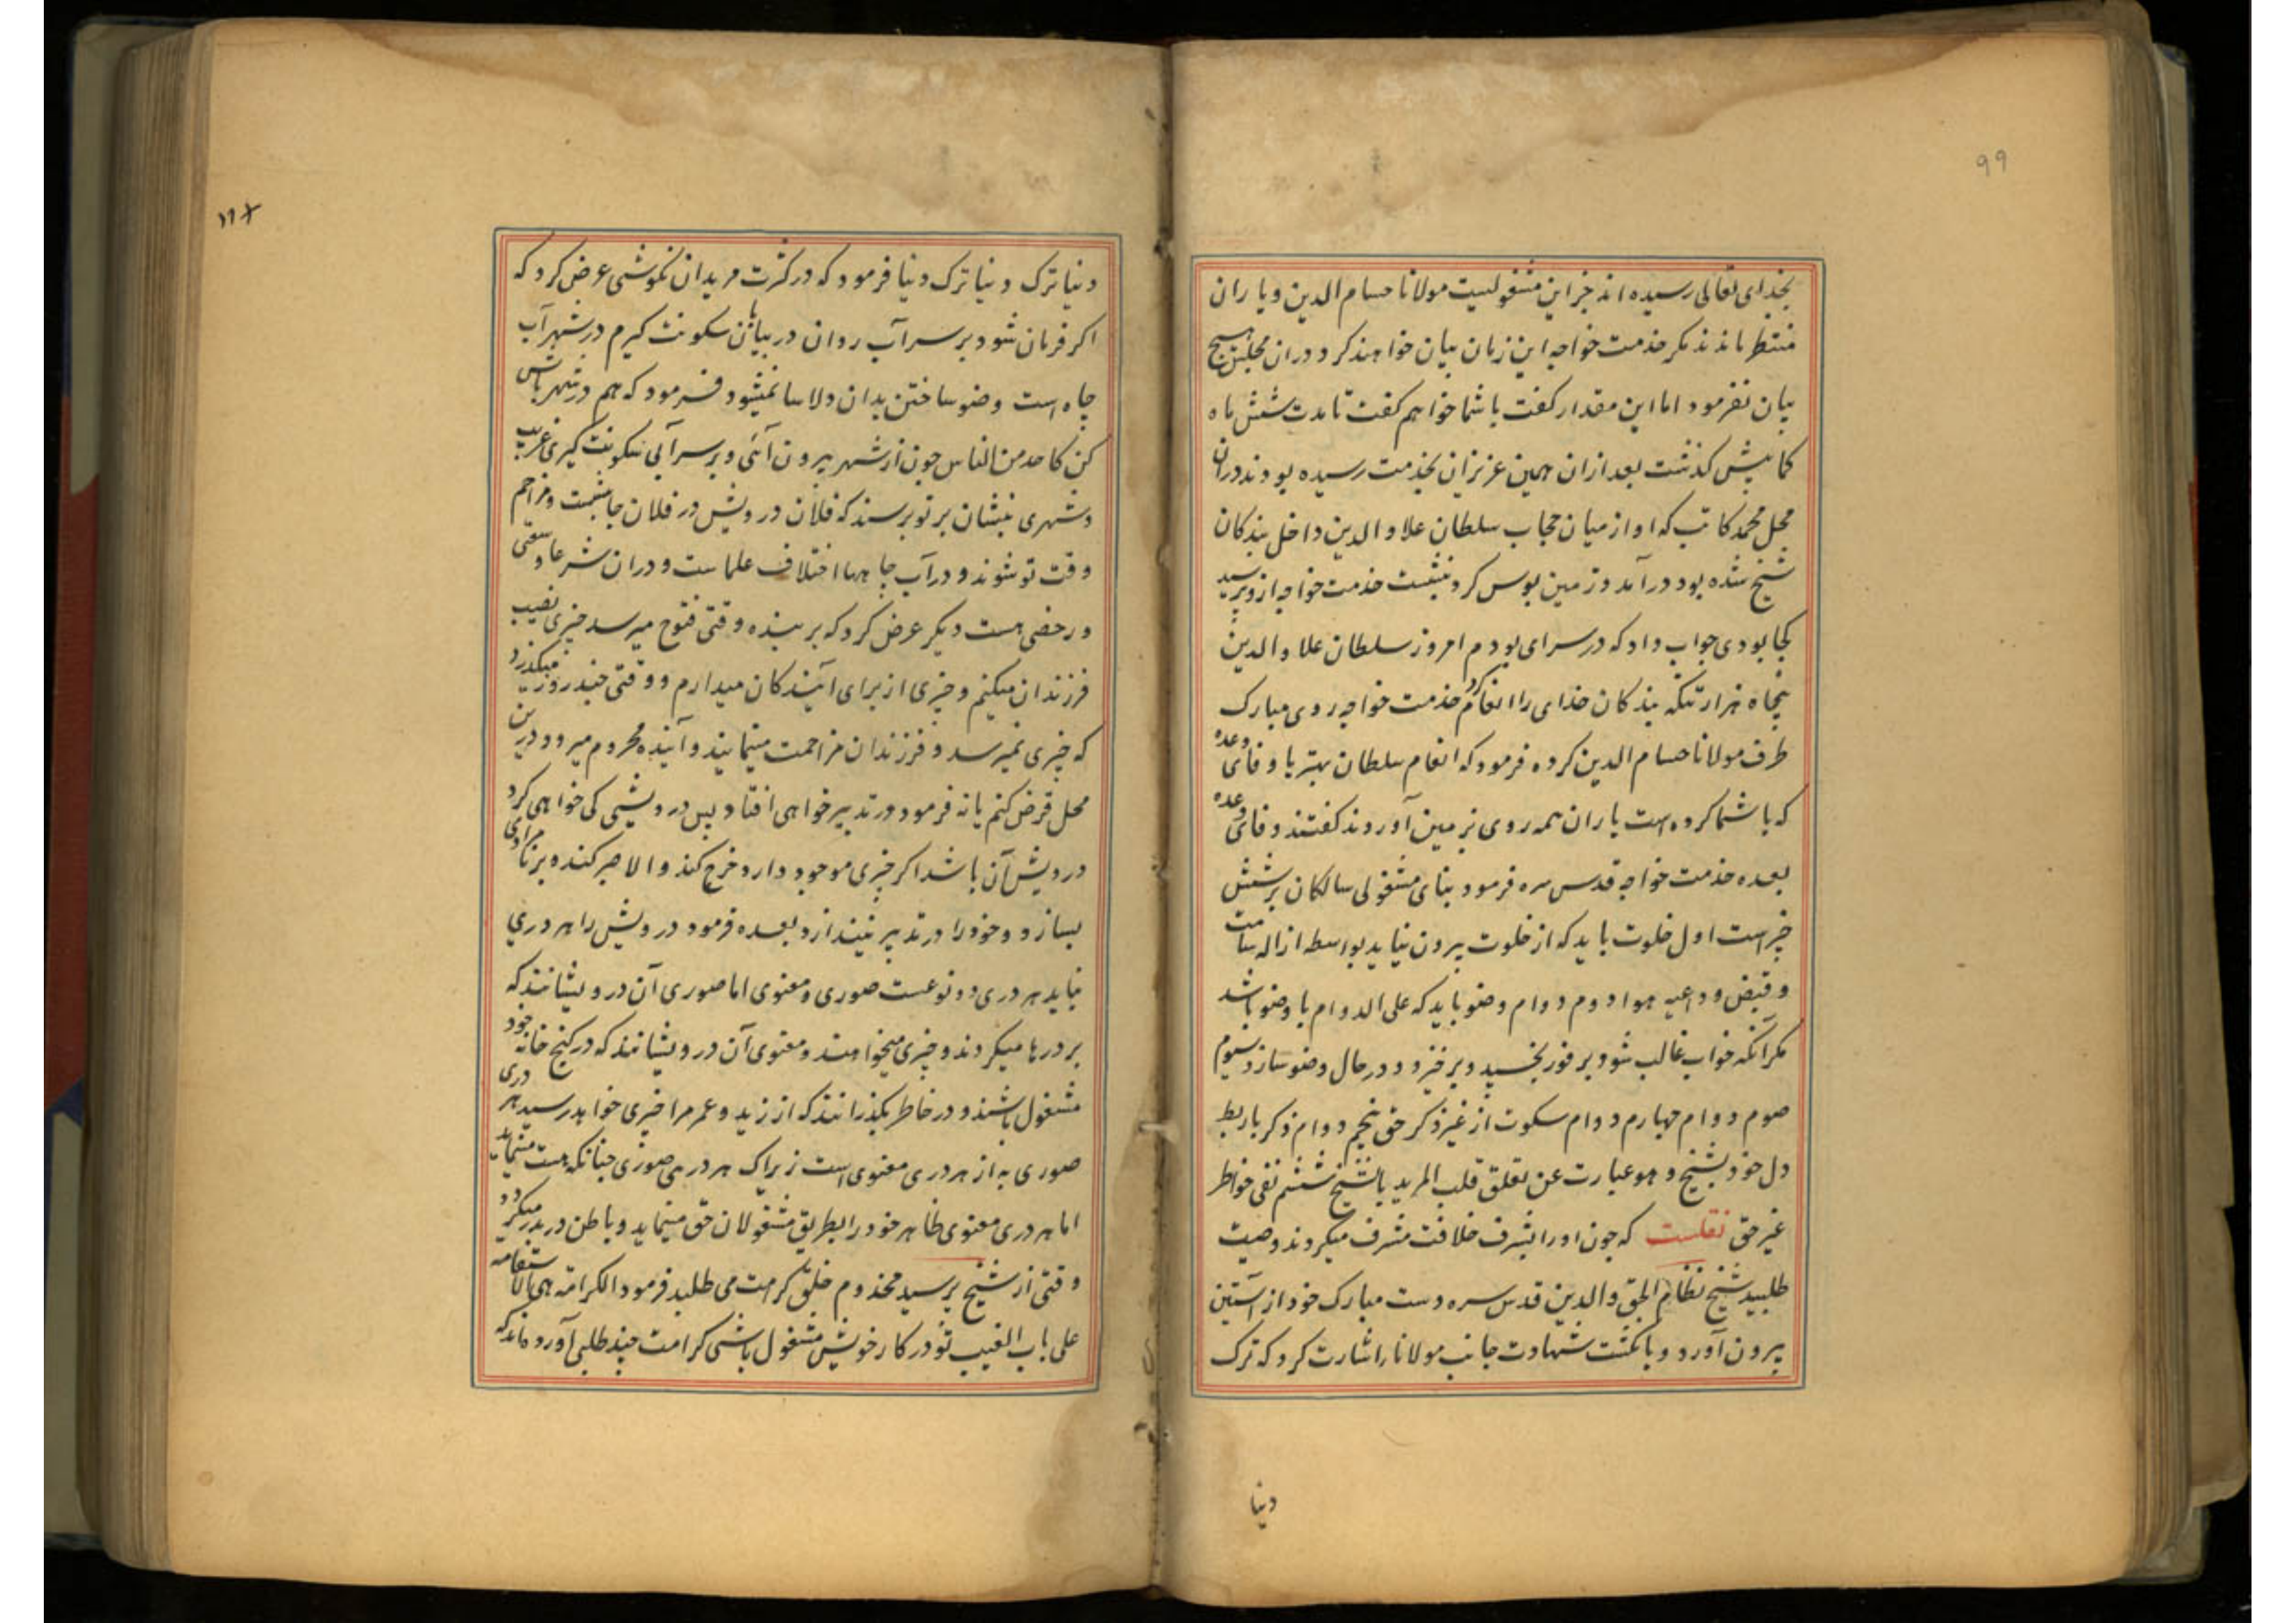 99
بخدای تعالی رسیده اند جز این مشغولیست مولانا حسام الدین و یاران
منتظر ماندند مکر خدمت خواجه این زمان بیان خواهند کرد در ان مجلس هیچ
بیان نفرمود اما این مقدار کفت با شما خواهم کفت تا مدت شش ماه
کما بیش کذشت بعد ازان همین عزیزان بخدمت رسیده بودند دران
محل محمد کاتب که او از میان حجاب سلطان علاو الدین داخل بندکان
شیخ شده بود در آمد و زمین بوس کرد بنشست خدمت خواجه ازو پرسید
کجا بودی جواب داد که در سرای بودم امروز سلطان علاو الدین
پنجاه هزار تنکه بندکان خدای را انعام کرد خدمت خواجه روی مبارک
طرف مولانا حسام الدین کرده فرمود که انعام سلطان بهتر یا وفای وعده
که با شما کرده است یاران همه روی بزمین آوردند کفتند وفای وعده
بعده خدمت خواجه قدس سره فرمود بنای مشغولی سالکان بر شش
چیز است اول خلوت باید که از خلوت بیرون نیاید بواسطه ازاله سامت
و قبض و داعیه هوا دوم دوام وضو باید که علی الدوام با وضو باشد
مکر آنکه خواب غالب شود بر فور بخسپد و بر خیزد و در حال وضو سازد سیوم
صوم دوام چهارم دوام سکوت از غیر ذکر حق پنجم دوام ذکر با ربط
دل خود بشیخ و هو عبارت عن تعلق قلب المرید بالشیخ ششم نفی خواطر
غیر حق نقلست که چون او را بشرف خلافت مشرف میکردند وصیت
طلبید شیخ نظام الحق والدین قدس سره دست مبارک خود از آستین
بیرون آورد و بانکشت شهادت جانب مولانا را اشارت کرد که ترک
دنیا
دنیا ترک دنیا ترک دنیا فرمود که در کثرت مریدان نکوشی عرض کرد که
اکر فرمان شود بر سر آب روان در بیابان سکونت کیرم در شهر آب
چاه است وضو ساختن بدان دلاسا نمیشود فرمود که هم در شهر باش
کن کاحد من الناس چون از شهر بیرون آئی و بر سر آبی سکونت کیری غریب
و شهری بنشان بر تو برسند که فلان درویش در فلان جا نشست و مزاحم
وقت تو شوند و در آب چاهها اختلاف علماست و دران شرعا وسعتی
و رخصتی هست دیکر عرض کرد که بر بنده وقتی فتوح میرسد چیزی نصیب
فرزندان میکنم و چیزی از برای آیندکان میدارم و وقتی چند روز میکذرد
که چیزی نمیرسد و فرزندان مزاحمت مینمایند و آینده محروم میرود درین
محل قرض کنم یا نه فرمود در تدبیر خواهی افتاد پس درویشی کی خواهی کرد
درویش آن باشد اکر چیزی موجود دارد خرج کند و الا صبر کند بر نامرادی
بسازد و خود را در تدبیر نیندازد بعده فرمود درویش را هر دری
نباید هر دری دو نوعست صوری و معنوی اما صوری آن درویشانند که
بر درها میکردند و چیزی میخواهند و معنوی آن درویشانند که در کنج خانه خود
مشغول باشند و در خاطر بکذرانند که از زید و عمر مرا چیزی خواهد رسید هر دری
صوری به از هر دری معنوی است زیراک هر دری صوری چنانکه هست مینماید
اما هر دری معنوی ظاهر خود را بطریق مشغولان حق مینماید و باطن در بدر میکردد
وقتی از شیخ پرسید مخدوم خلق کرامت می طلبد فرمود الکرامة هی الاستقامه
علی باب الغیب تو در کار خویش مشغول باشی کرامت چند طلبی آورده اند که